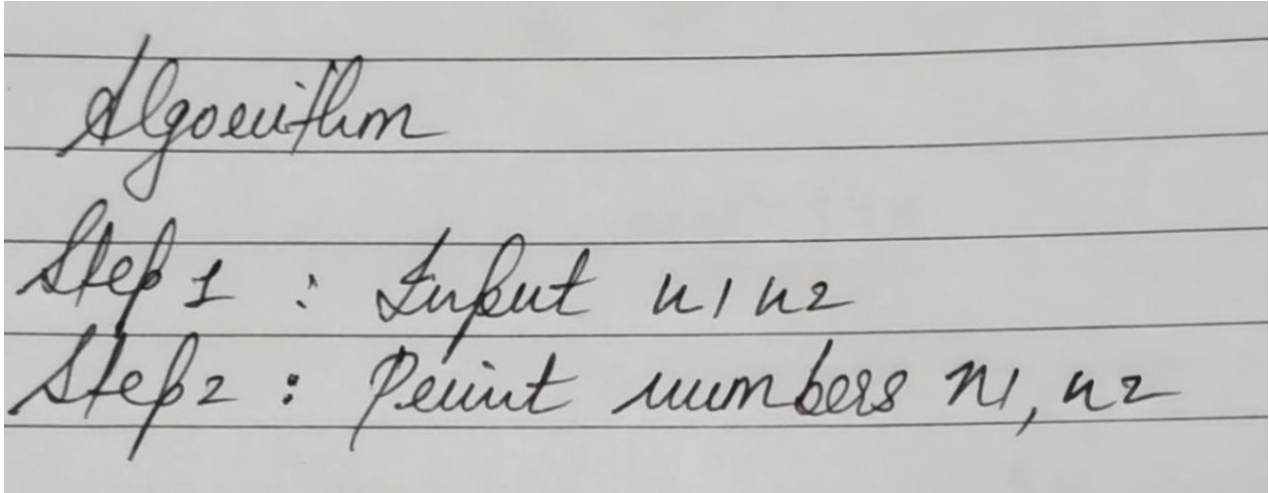 Algorithm
Step 1 : Input n1 n2
Step 2 : Print numbers n1, n2